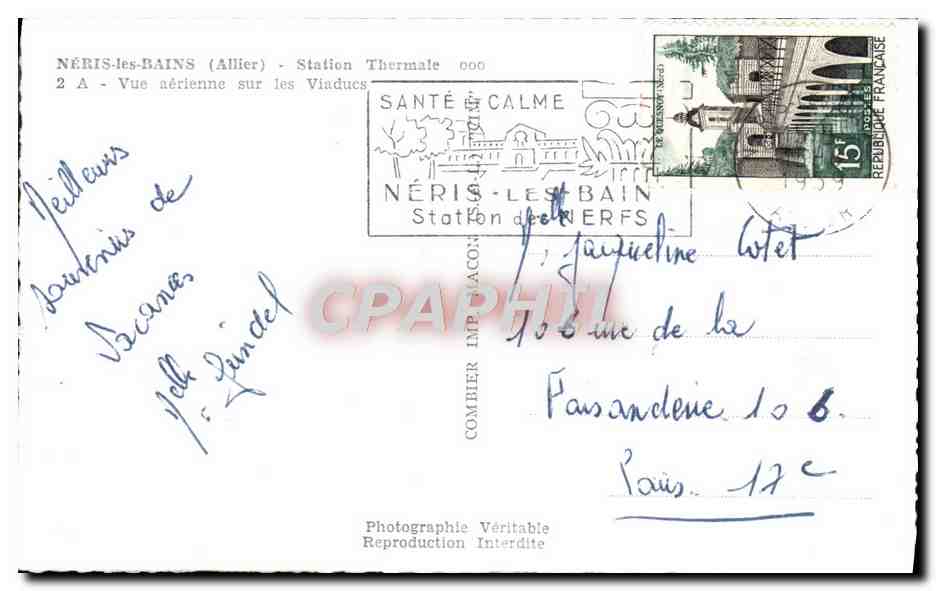 NÉRIS-les-BAINS (Allier) - Station Thermale ooo
2 A - Vue aérienne sur les Viaducs
SANTÉ CALME
NÉRIS-LES-BAIN
Station des NERFS
LE QUESNOY (Nord)
15F
POSTES
REPUBLIQUE FRANÇAISE
1959
Meilleurs
souvenirs de
Vacances
Melle
COMBIER IMP. MACON
CPAPHIL
Melle Jacqueline Cotet
106 rue de la
Faisanderie 106.
Paris. 17e
Photographie Véritable
Reproduction Interdite